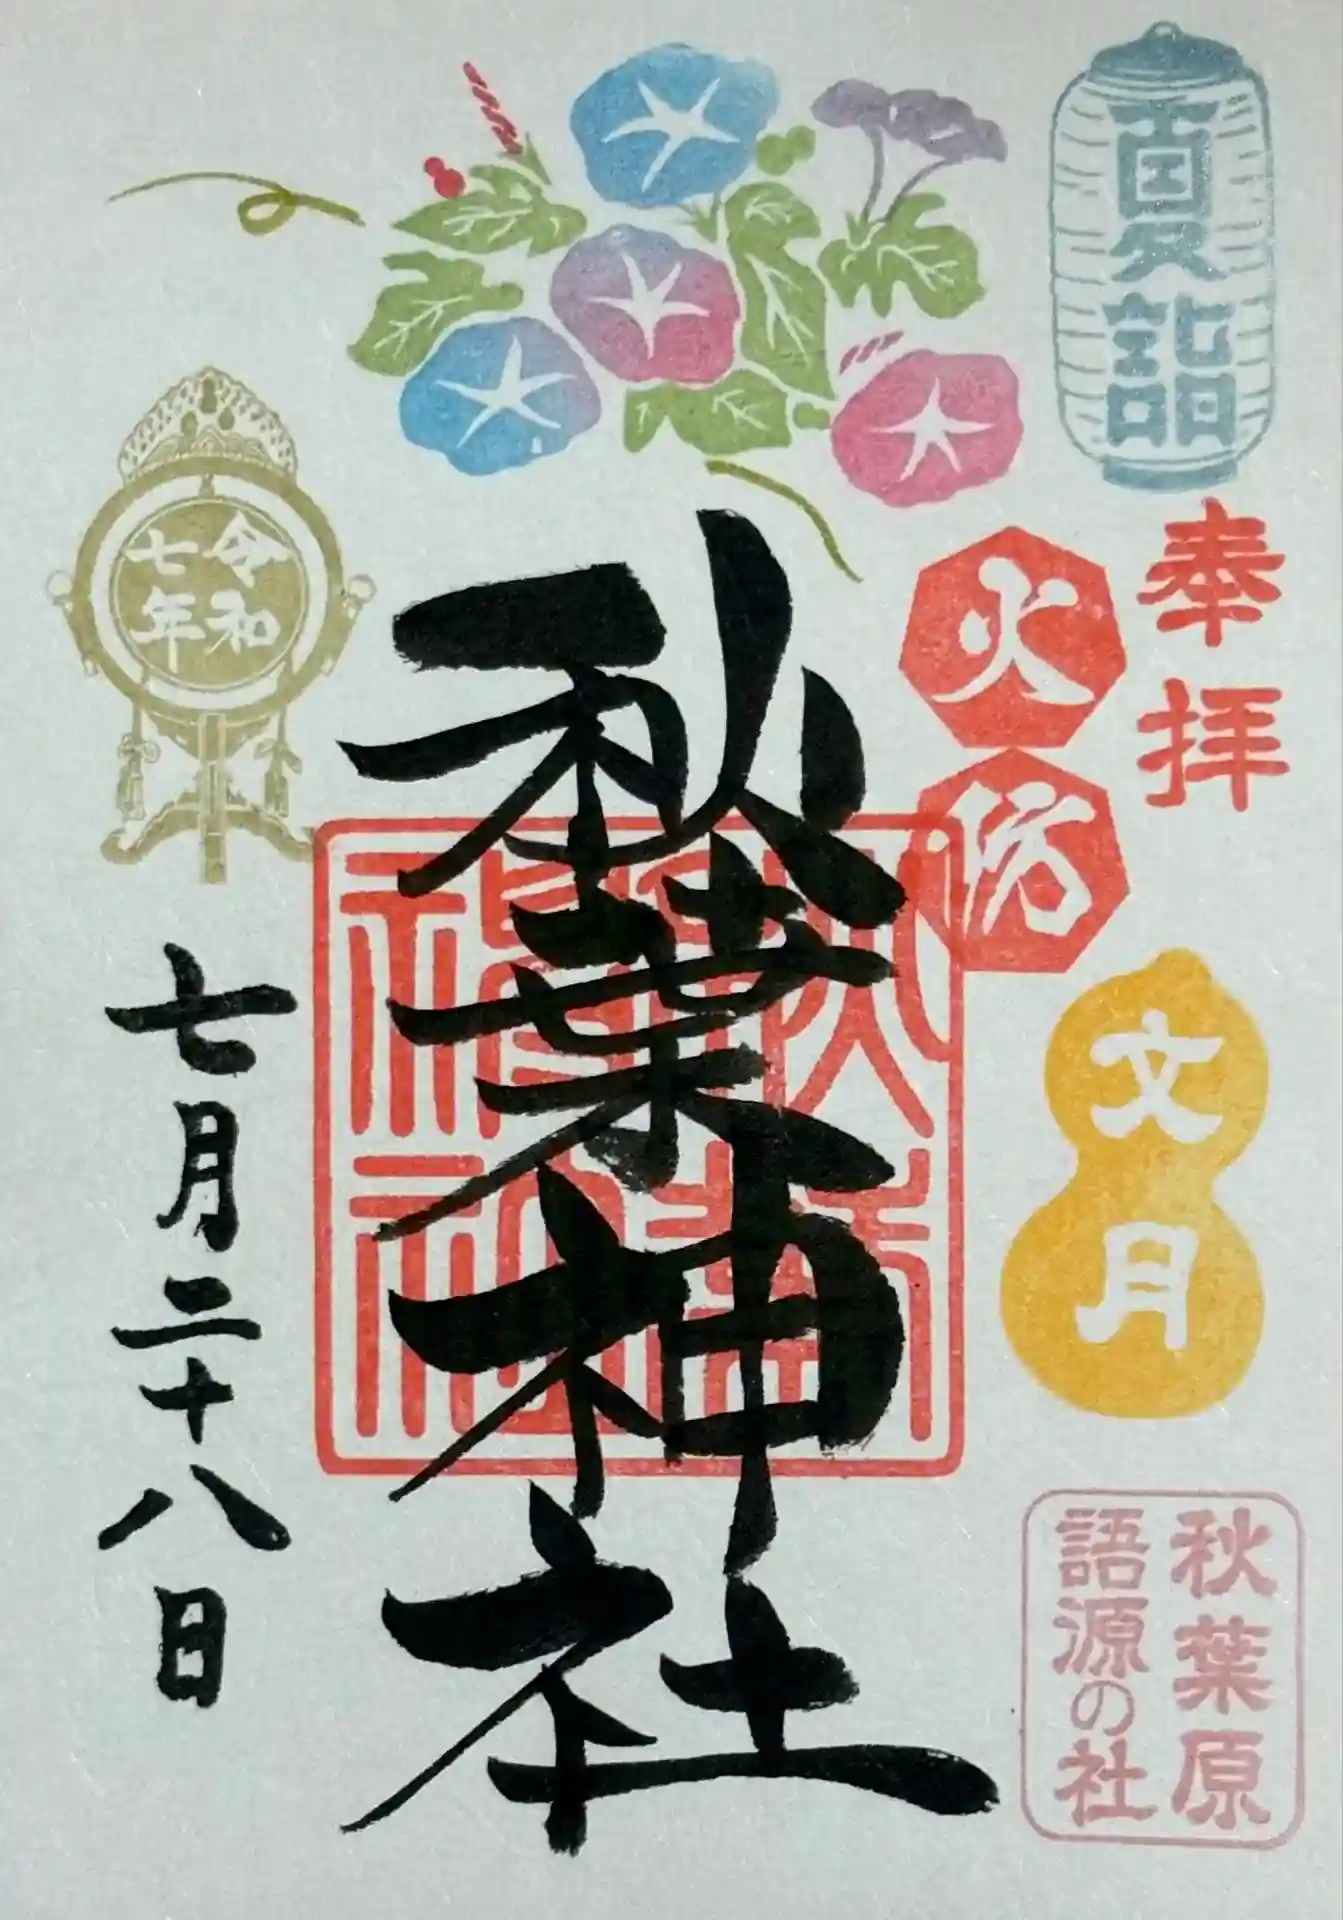 夏詣
奉拝
火防
文月
秋葉原
語源の社
秋葉神社
令和
七年
七月二十八日